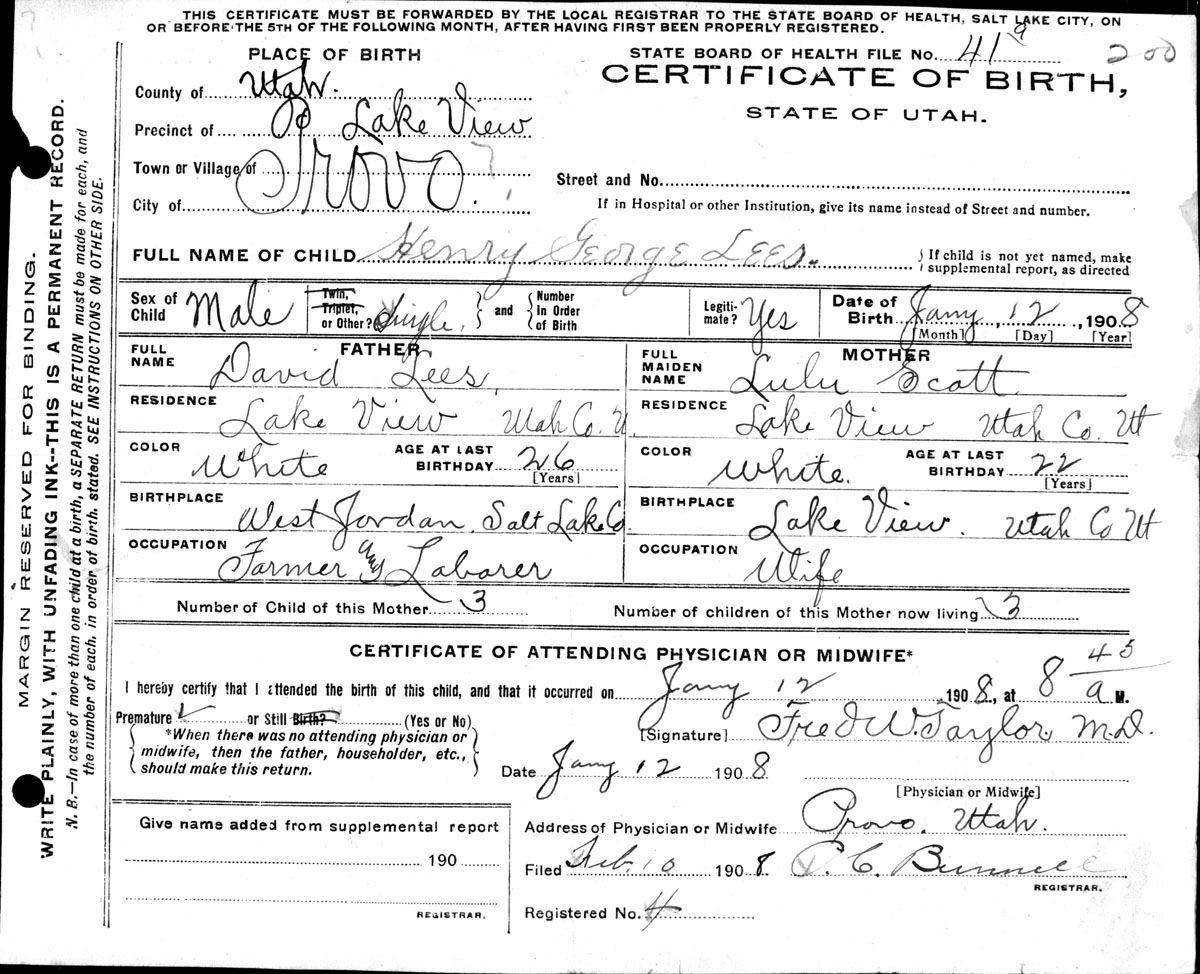 THIS CERTIFICATE MUST BE FORWARDED BY THE LOCAL REGISTRAR TO THE STATE BOARD OF HEALTH, SALT LAKE CITY, ON
OR BEFORE THE 5TH OF THE FOLLOWING MONTH, AFTER HAVING FIRST BEEN PROPERLY REGISTERED.
PLACE OF BIRTH
STATE BOARD OF HEALTH FILE No. 41 9
200
CERTIFICATE OF BIRTH,
STATE OF UTAH.
County of Utah.
Precinct of Lake View
Town or Village of
City of Provo.
Street and No.
If in Hospital or other Institution, give its name instead of Street and number.
FULL NAME OF CHILD Henry George Lees.
If child is not yet named, make
supplemental report, as directed
Sex of Child Male
Twin, Triplet, or Other? Single
and Number In Order of Birth
Legiti-mate? Yes
Date of Birth Jany 12, 1908
[Month] [Day] [Year]
FATHER
FULL NAME David Lees,
RESIDENCE Lake View Utah Co. U
COLOR White
AGE AT LAST BIRTHDAY 26
[Years]
BIRTHPLACE West Jordan, Salt Lake Co
OCCUPATION Farmer Laborer
MOTHER
FULL MAIDEN NAME Lulu Scott
RESIDENCE Lake View Utah Co. Ut
COLOR White.
AGE AT LAST BIRTHDAY 22
[Years]
BIRTHPLACE Lake View. Utah Co Ut
OCCUPATION Wife
Number of Child of this Mother 3
Number of children of this Mother now living 3
CERTIFICATE OF ATTENDING PHYSICIAN OR MIDWIFE*
I hereby certify that I attended the birth of this child, and that it occurred on Jany 12 1908, at 8 45 a M.
Premature or Still Birth? (Yes or No)
*When there was no attending physician or
midwife, then the father, householder, etc.,
should make this return.
[Signature] Fred W. Taylor, M.D.
Date Jany 12 1908
[Physician or Midwife]
Give name added from supplemental report
190
REGISTRAR.
Address of Physician or Midwife Provo. Utah.
Filed Feb. 10 1908. Bunnell
REGISTRAR.
Registered No. 4
MARGIN RESERVED FOR BINDING.
WRITE PLAINLY, WITH UNFADING INK--THIS IS A PERMANENT RECORD.
N. B.—In case of more than one child at a birth, a SEPARATE RETURN must be made for each, and
the number of each, in order of birth, stated. SEE INSTRUCTIONS ON OTHER SIDE.